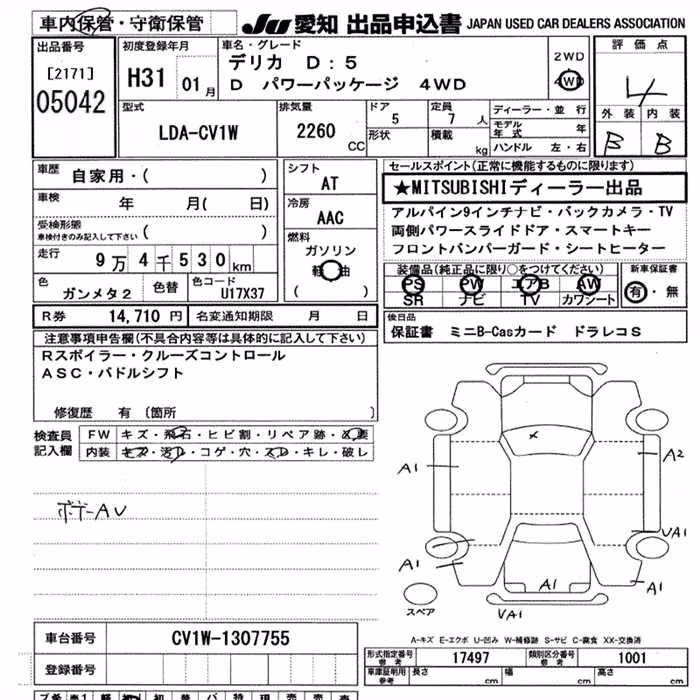 車内保管・守衛保管
Ju 愛知 出品申込書 JAPAN USED CAR DEALERS ASSOCIATION
出品番号
[2171]
05042
初度登録年月
H31 01月
車名・グレード
デリカ D:5
D パワーパッケージ 4WD
2WD
4WD
評価点
4
外装 内装
B B
型式
LDA-CV1W
排気量
2260 CC
ドア
5
形状
定員
7 人
積載
kg
ディーラー・並行
モデル年式 年
ハンドル 左・右
車歴
自家用・( )
車検 年 月( 日)
受検形態
車検付きのみ記入して下さい ( )
走行 9万4千530km
色 ガンメタ2
色替
色コード
U17X37
シフト
AT
冷房
AAC
燃料
ガソリン
軽油
( )
セールスポイント(正常に機能するものに限ります)
★MITSUBISHIディーラー出品
アルパイン9インチナビ・バックカメラ・TV
両側パワースライドドア・スマートキー
フロントバンパーガード・シートヒーター
装備品(純正品に限り○をつけてください)
PS PW エアB AW
SR ナビ TV カワシート
新車保証書
有・無
R券 14,710円 名変通知期限 月 日
後日品
保証書 ミニB-Casカード ドラレコS
注意事項申告欄(不具合内容等は具体的に記入して下さい)
Rスポイラー・クルーズコントロール
ASC・パドルシフト
修復歴 有 〔箇所 〕
検査員記入欄
FW キズ・飛石・ヒビ割・リペア跡・必要
内装 キズ・汚レ・コゲ・穴・スレ・キレ・破レ
ボデーAU
A1
A2
A1
UA1
A1
A1
スペア
UA1
A-キズ E-エクボ U-凹み W-補修跡 S-サビ C-腐食 XX-交換済
車台番号 CV1W-1307755
登録番号
形式指定番号 参考 17497
類別区分番号 参考 1001
車庫証明用 参考 長さ cm 幅 cm 高さ cm